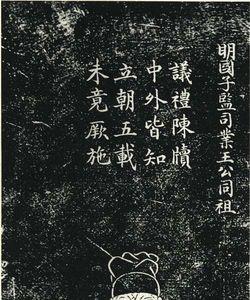 明國子監司業王公同祖
議禮陳牘
中外皆知
立朝五載
未竟厥施